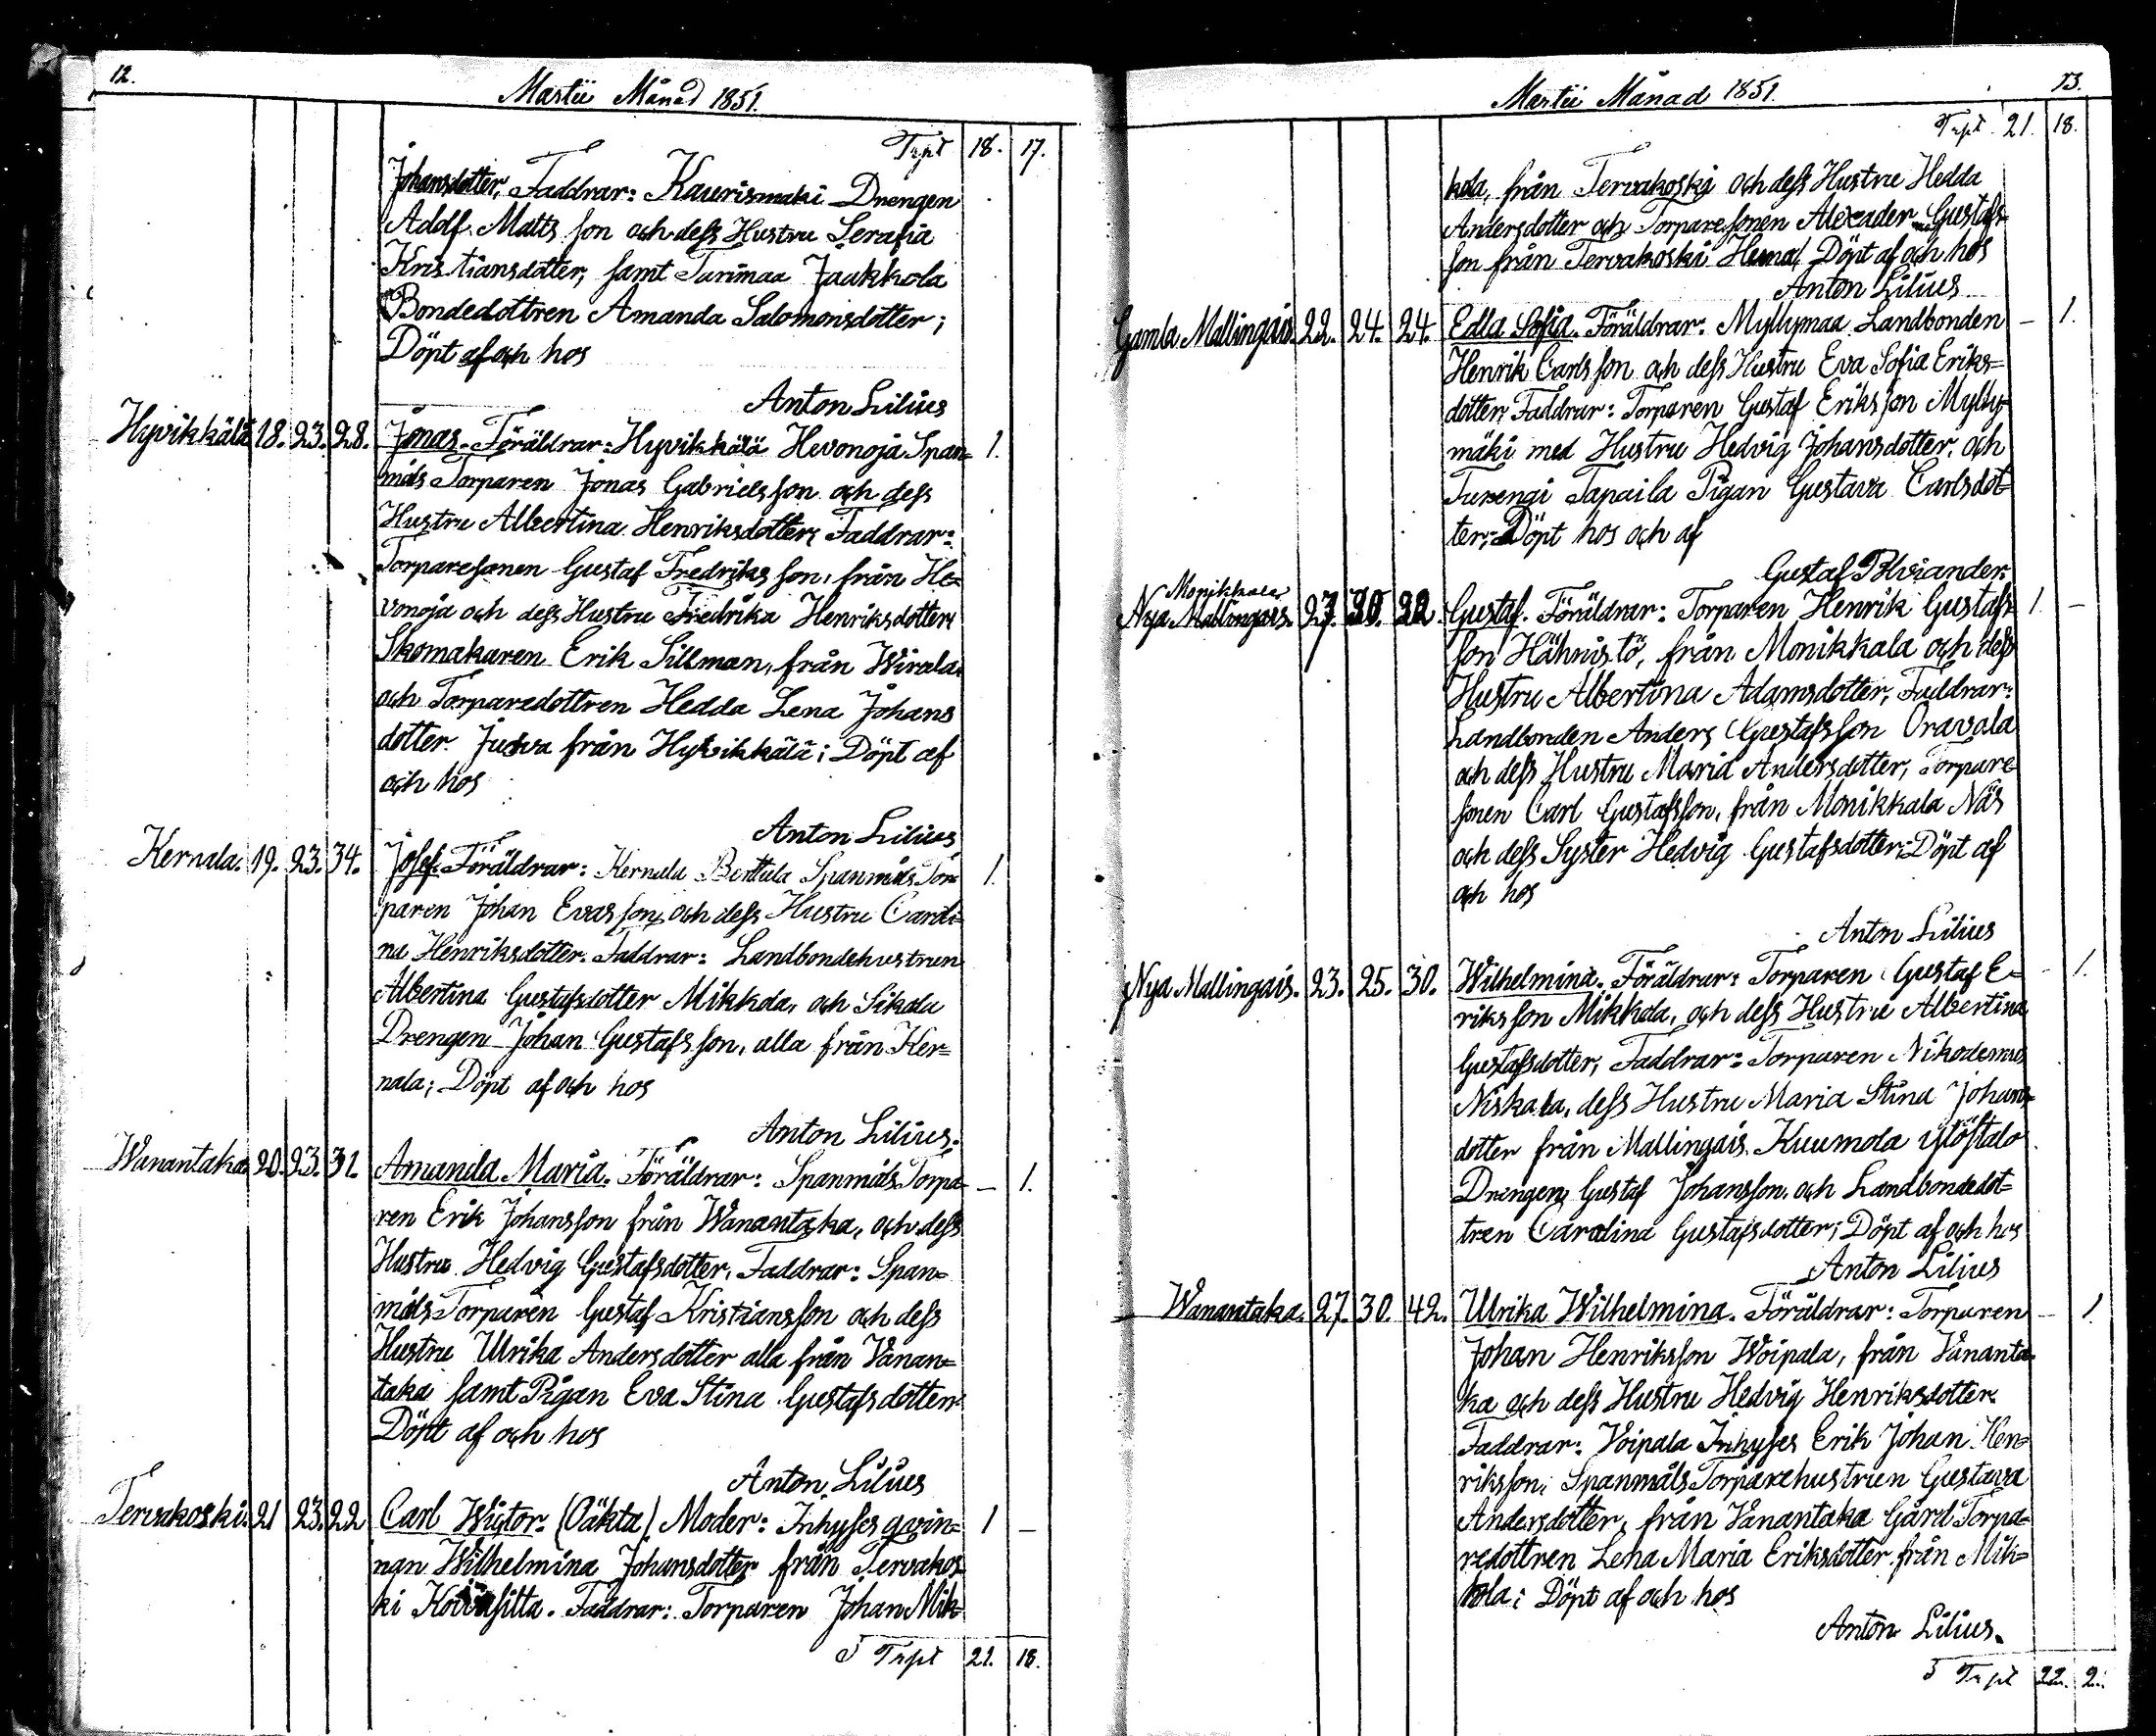 12.
Martii Månad 1851.
Trpt 18. 17.
Johansdotter, Faddrar: Kaurismaki Drengen
Adolf Matts son och dess Hustru Serafia
Kristiansdotter, samt Turimaa Jaakkola
Bondedottren Amanda Salomonsdotter;
Döpt af och hos
Anton Lilius
Hyvikkälä 18. 23. 28. Jonas. Föräldrar: Hyvikkälä Hevonoja Span= 1.
måls Torparen Jonas Gabriels son och dess
Hustru Albertina Henriksdotter, Faddrar:
Torparesonen Gustaf Fredriks son, från He=
vonoja och dess Hustru Fredrika Henriksdotter,
Skomakaren Erik Sillman, från Wirala
och Torparedottren Hedda Lena Johans
dotter från Hyvikkälä; Döpt af
och hos
Anton Lilius
Kernala. 19. 23. 34. Josef. Föräldrar: Kernala Berttula Spanmåls Tor= 1.
paren Johan Evas son, och dess Hustru Caroli=
na Henriksdotter. Faddrar: Landbondehustrun
Albertina Gustafsdotter Mikkola, och Sikala
Drengen Johan Gustafs son, alla från Ker=
nala; Döpt af och hos
Anton Lilius.
Wanantaka 20. 23. 31. Amanda Maria. Föräldrar: Spanmåls Torpa= – 1.
ren Erik Johansson från Wanantaka, och dess
Hustru Hedvig Gustafsdotter, Faddrar: Span=
måls Torparen Gustaf Kristiansson och dess
Hustru Ulrika Andersdotter alla från Vanan=
taka samt Pigan Eva Stina Gustafsdotter.
Döpt af och hos
Anton Lilius
Tervakoski. 21 23. 22 Carl Wictor. (Oäkta) Moder: Inhyses qvin= 1 –
nan Wilhelmina Johansdotter från Tervakos
ki Faddrar: Torparen Johan Mik
Trpt 21. 18.
Martii Månad 1851.
13.
Trpt 21. 18.
kola, från Tervakoski och dess Hustru Hedda
Andersdotter och Torparesonen Alexader Gustafs
son från Tervakoski Döpt af och hos
Anton Lilius
Gamla Mallingais. 22. 24. 24. Edla Sofia. Föräldrar: Myllymaa Landbonden – 1.
Henrik Carls son och dess Hustru Eva Sofia Eriks=
dotter, Faddrar: Torparen Gustaf Eriks son Mylly
mäki med Hustru Hedvig Johansdotter, och
Turengi Tapaila Pigan Gustava Carlsdot
ter; Döpt hos och af
Gustaf
Monikkala
Nya Mallingais. 27. Gustaf. Föräldrar: Torparen Henrik Gustafs 1. –
son Hähnistö, från Monikkala och dess
Hustru Albertina Adamsdotter, Faddrar:
Landbonden Anders Gustafs son Oravala
och dess Hustru Maria Andersdotter, Torpare
sonen Carl Gustafsson, från Monikkala Näs
och dess Syster Hedvig Gustafsdotter; Döpt af
och hos
Anton Lilius
Nya Mallingais. 23. 25. 30. Wilhelmina. Föräldrar: Torparen Gustaf E= – 1.
riks son Mikkola, och dess Hustru Albertina
Gustafsdotter, Faddrar: Torparen Nikodemus
Niskala, dess Hustru Maria Stina Johans=
dotter från Mallingais. Kuumola
Drengen Gustaf Johansson, och Landbondedot=
tren Carolina Gustafsdotter; Döpt af och hos
Anton Lilius
Wanantaka. 27. 30. 42. Ulrika Wilhelmina. Föräldrar: Torparen – 1.
Johan Henriksson Woipala, från Vananta
ka och dess Hustru Hedvig Henriksdotter.
Faddrar: Voipala Inhyses Erik Johan Hen=
riksson, Spanmåls Torparehustrun Gustava
Andersdotter, från Vanantaka Gård Torpa=
redottren Lena Maria Eriksdotter från Mik=
kola; Döpt af och hos
Anton Lilius.
Trpt 22.